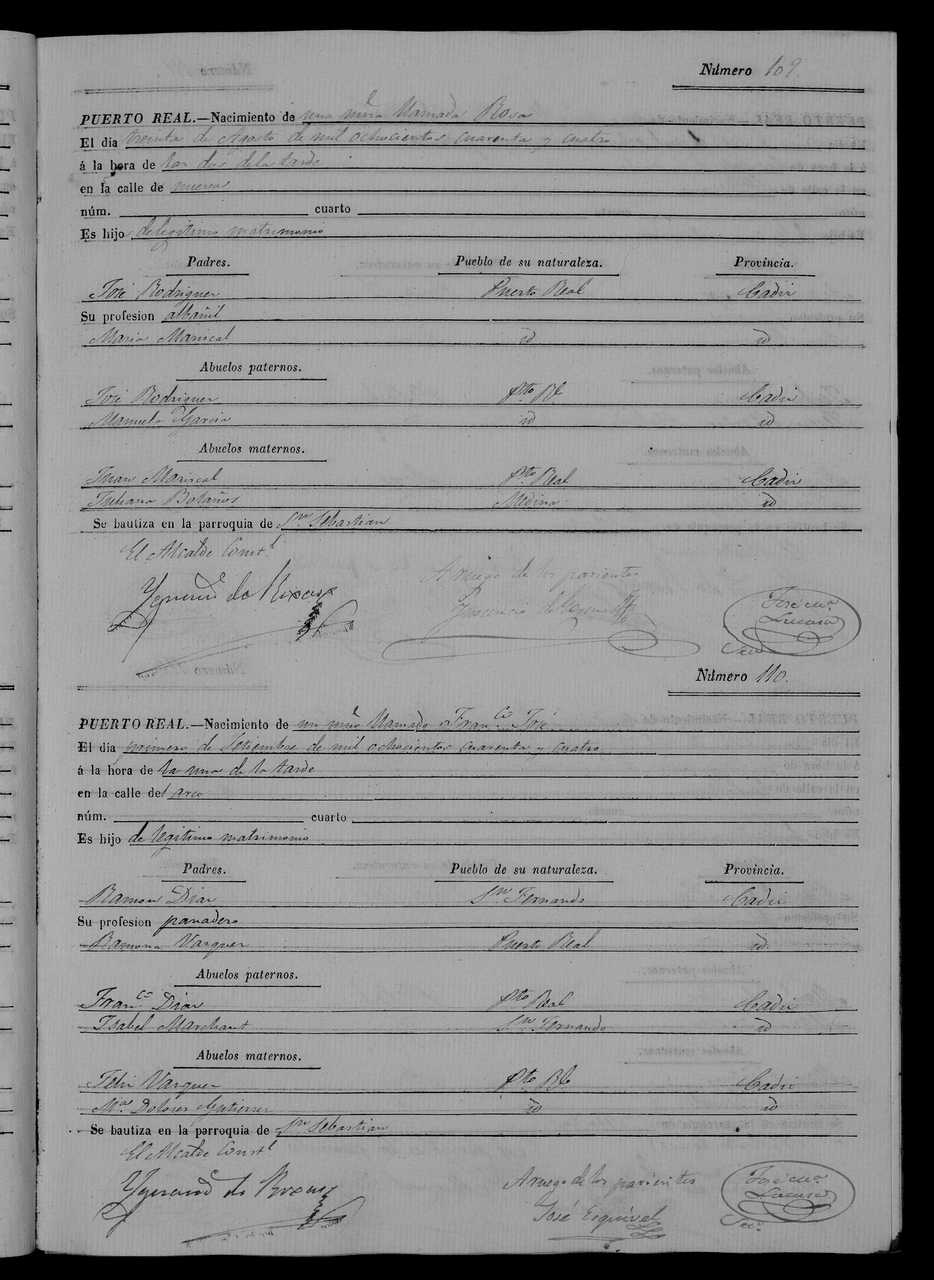 Número 109.
PUERTO REAL.—Nacimiento de una niña llamada Rosa
El dia treinta de Agosto de mil ochocientos cuarenta y cuatro
á la hora de las dos de la tarde
en la calle de nueva
núm. cuarto
Es hijo de legitimo matrimonio
Padres. Pueblo de su naturaleza. Provincia.
José Rodriguez Puerto Real Cadiz
Su profesion albañil
Maria Mariscal id id
Abuelos paternos.
José Rodriguez Pto Rl Cadiz
Manuela Garcia id id
Abuelos maternos.
Juan Mariscal Pto Real Cadiz
Juliana Bolaños Medina id
Se bautiza en la parroquia de Sn Sebastian
El Alcalde Constl
A ruego de los parientes
José
Número 110.
PUERTO REAL.—Nacimiento de un niño llamado Franco José
El dia primero de Setiembre de mil ochocientos cuarenta y cuatro
á la hora de la una de la tarde
en la calle del arco
núm. cuarto
Es hijo de legitimo matrimonio
Padres. Pueblo de su naturaleza. Provincia.
Ramon Diaz Sn Fernando Cadiz
Su profesion panadero
Ramona Vazquez Puerto Real id
Abuelos paternos.
Franco Diaz Pto Real Cadiz
Isabel Marchant Sn Fernando id
Abuelos maternos.
Felix Vazquez Pto Rl Cadiz
Ma Dolores Gutierrez id id
Se bautiza en la parroquia de Sn Sebastian
El Alcalde Constl
A ruego de los parientes
José Esquivel
José